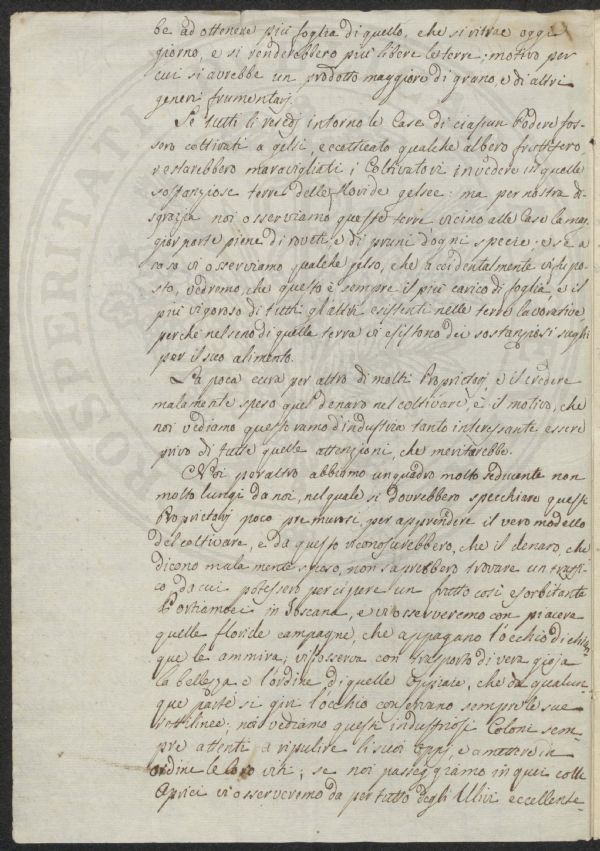 be ad ottenere più foglia di quello, che si ritrae oggi
giorno, e si renderebbero più libere le terre; motivo per
cui si avrebbe un prodotto maggiore di grano, e di altri
generi frumentarj.
Se tutti li resedj intorno le Case di ciascun Podere fos-
sero coltivati a gelsi, eccettuato qualche albero fruttifero
restarebbero maravigliati i Coltivatori in vedere in quelle
sostanziose terre delle floride gelsee: ma per nostra di-
sgrazia noi osserviamo queste terre vicino alle Case la mag
gior parte piene di roveti, e di pruni d'ogni specie, e se a
caso vi osserviamo qualche gelso, che accidentalmente visi po-
sto, vedremo, che questo è sempre il più carico di foglia, e il
più vigoroso di tutti gli altri esistenti nelle terre lavorative,
perche nel seno di quella terra vi esistono dei sostanziosi sughi
per il suo alimento.
La poca cura per altro di molti Proprietarj, e il credere
malamente speso quel denaro nel coltivare, è il motivo, che
noi vediamo questo ramo d'industria tanto interessante essere
privo di tutte quelle attenzioni, che meritarebbe.
Noi per altro abbiamo un quadro molto seducente non
molto lungi da noi, nel quale si dovrebbero specchiare questi
Proprietarj poco premurosi, per apprendere il vero modello
del coltivare, e da questo riconoscerebbero, che il denaro, che
dicono malamente speso, non saprebbero trovare un traffi
co da cui potessero percipere un frutto così esorbitante
Portiamoci in Toscana, e vi osserveremo con piacere
quelle floride campagne, che appagano l'occhio di chiun
que le ammira; vi si osserva con trasporto di vera gioja
la bellezza e l'ordine di quelle che da qualun-
que parte si giri l'occhio conservano sempre le sue
rettilinee; noi vediamo questi industriosi Coloni sem-
pre attenti a ripulire li suoi e a mettere in
ordine le loro viti; se noi passeggiamo in quei colli
aprici vi osserveremo da per tutto degli Ulivi eccellente-